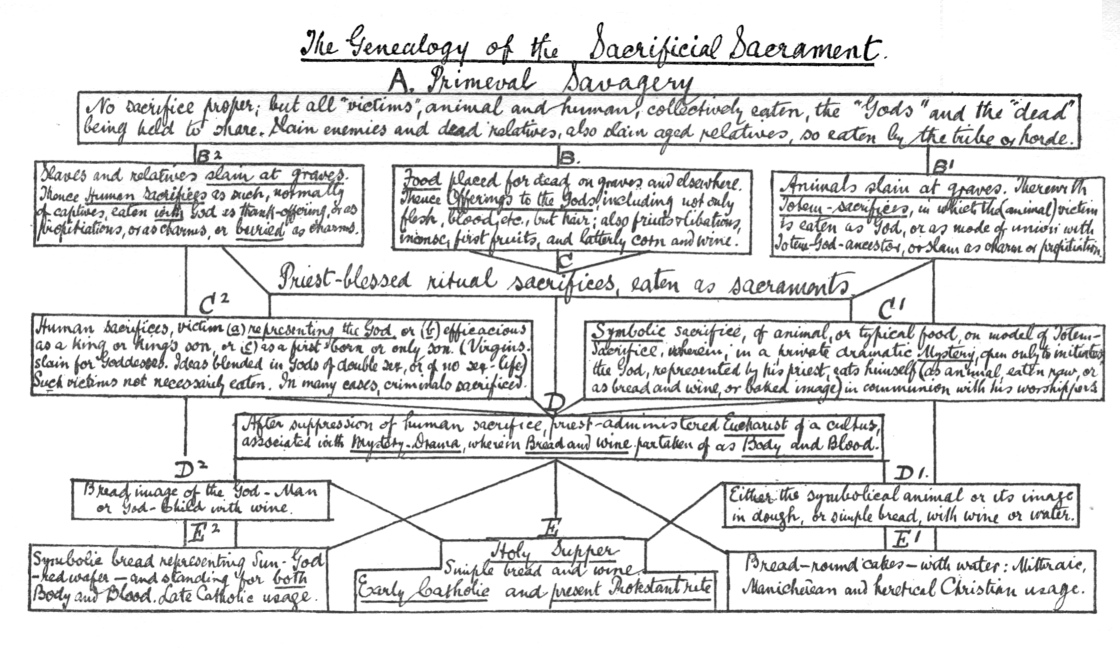 The Genealogy of the Sacrificial Sacrament.
A. Primeval Savagery
No sacrifice proper; but all "victims", animal and human, collectively eaten, the "Gods" and the "dead"
being held to share. Slain enemies and dead relatives, also slain aged relatives, so eaten by the tribe or horde.
B2
Slaves and relatives slain at graves.
Thence Human Sacrifices as such, normally
of captives, eaten with God as thank-offering, or as
propitiations, or as charms, or buried as charms.
B.
Food placed for dead on graves and elsewhere.
Thence Offerings to the Gods, including not only
flesh, blood, etc., but hair; also fruits & libations,
incense, first fruits, and latterly corn and wine.
B1
Animals slain at graves. Therewith
Totem-sacrifices, in which the (animal) victim
is eaten as God, or as mode of union with
Totem-God-ancestor, or slain as charm or propitiation
C
Priest-blessed ritual sacrifices, eaten as sacraments
C2
Human sacrifices, victim (a) representing the God, or (b) efficacious
as a king or king's son, or (c) as a first born or only son. (Virgins
slain for Goddesses. Ideas blended in Gods of double sex, or of no sex-life)
Such victims not necessarily eaten. In many cases, criminals sacrificed.
C1
Symbolic sacrifice, of animal, or typical food, on model of Totem-
Sacrifice, wherein, in a private dramatic Mystery, open only to initiates
the God, represented by his priest, eats himself (as animal, eaten raw, or
as bread and wine, or baked image) in communion with his worshippers
D
After suppression of human sacrifice, priest-administered Eucharist of a cultus,
associated with Mystery-Drama, wherein Bread and wine partaken of as Body and Blood.
D2
Bread image of the God-Man
or God-Child with wine.
D1.
Either the symbolical animal or its image
in dough, or simple bread, with wine or water.
E2
Symbolic bread representing Sun-God
-red wafer - and standing for both
Body and Blood. Late Catholic usage.
E
Holy Supper
Simple bread and wine
Early Catholic and present Protestant rite
E1
Bread-round cakes-with water: Mithraic,
Manichæan and heretical Christian usage.